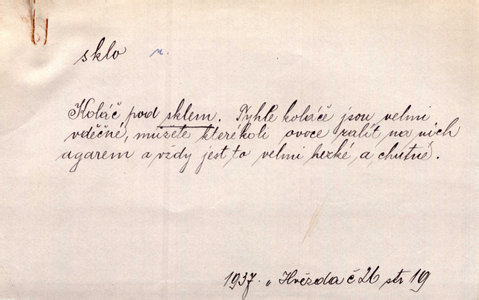 sklo n.
Koláč pod sklem. Tyhle koláče jsou velmi
vděčné, můžete kterékoli ovoce zalít na nich
agarem a vždy jest to velmi hezké a chutné.
1937. Hvězda č 26 str 19